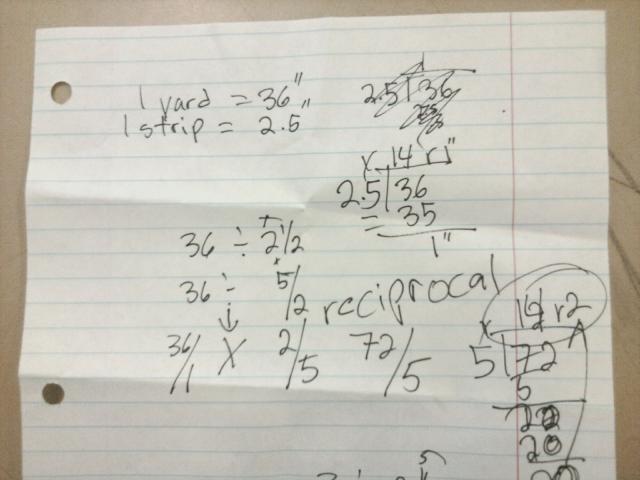 1 yard = 36"
1 strip = 2.5"
2.5 36
x 14 r 1"
2.5 36
= 35
1"
36 ÷ 2 1/2
36 ÷ 5/2
reciprocal
36/1 X 2/5 72/5
14 r2
5 72
5
20
5